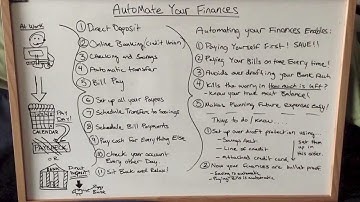 AutoMate Your Finances
At Work
Pay Day!
CALENDAR
PAYCHECK
OR
Direct Deposit
Your Bank
① Direct Deposit
② Online Banking (Credit Union)
③ Checking and Savings
④ Automatic transfer
⑤ Bill Pay
⑥ Set up all your Payees
⑦ Schedule Transfer to Savings
⑧ Schedule Bill Payments
⑨ Pay cash for Everything Else
⑩ Check your account
Every Other Day.
⑪ Sit Back and Relax!
Automating your Finances Enables:
① Paying Yourself First! SAVE!!
② Paying Your Bills on time Every time!
③ Avoids over drafting your Bank Acct
④ Kills the worry in How Much is left?
- Know your true next Balance!
⑤ Makes Planning Future expenses Easy!
Things to do / Know
① Set up over draft protection using
- Savings Acct
- Line of credit
- Attached credit card
Set them up in this order
② Now your Finances are bullet proof
- Saving is automatic
- Paying Bills is automatic